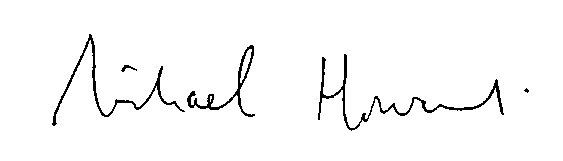 Michael Howard